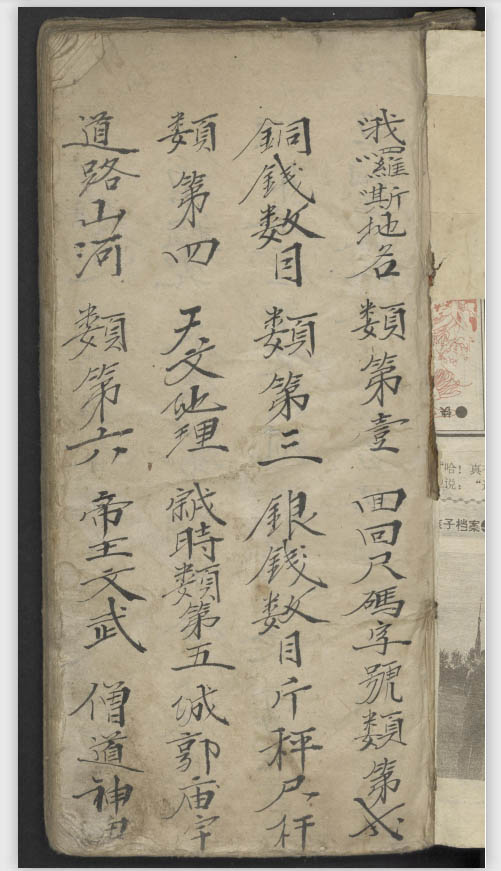 我羅斯地名 類第壹 面回尺碼字號類第弍
銅錢数目 類第三 銀錢数目斤秤尺杆
類第四 天文地理 誠時類第五城郭庙宇
道路山河 類第六 帝王文武 僧道神
哈！真
说：
子档案